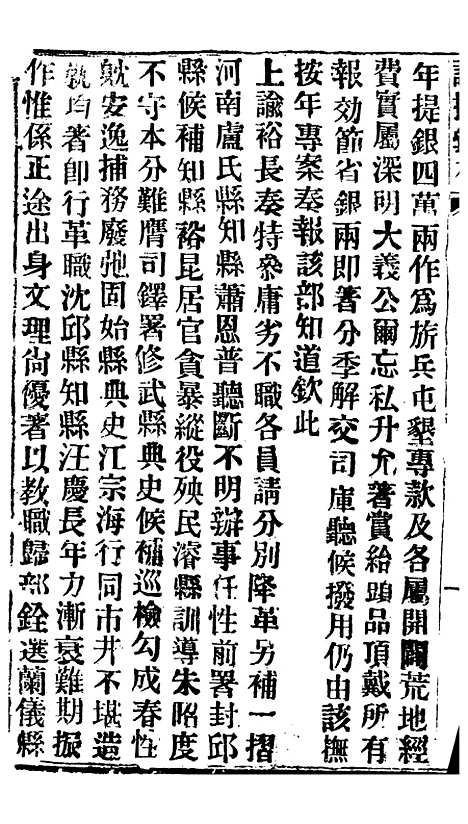 年提銀四萬兩作爲旂兵屯墾專款及各屬開闢荒地經
費實屬深明大義公爾忘私升允著賞給頭品頂戴所有
報効節省銀兩即著分季解交司庫聽候撥用仍由該撫
按年專案奏報該部知道欽此
上諭裕長奏特叅庸劣不職各員請分別降革另補一摺
河南盧氏縣知縣蕭恩普聽斷不明辦事任性前署封邱
縣候補知縣裕昆居官貪暴縱役殃民濬縣訓導朱昭度
不守本分難膺司鐸署修武縣典史候補巡檢勾成春性
躭安逸捕務廢弛固始縣典史江宗海行同市井不堪造
就均著即行革職沈邱縣知縣汪慶長年力漸衰難期振
作惟係正途出身文理尙優著以教職歸部銓選蘭儀縣